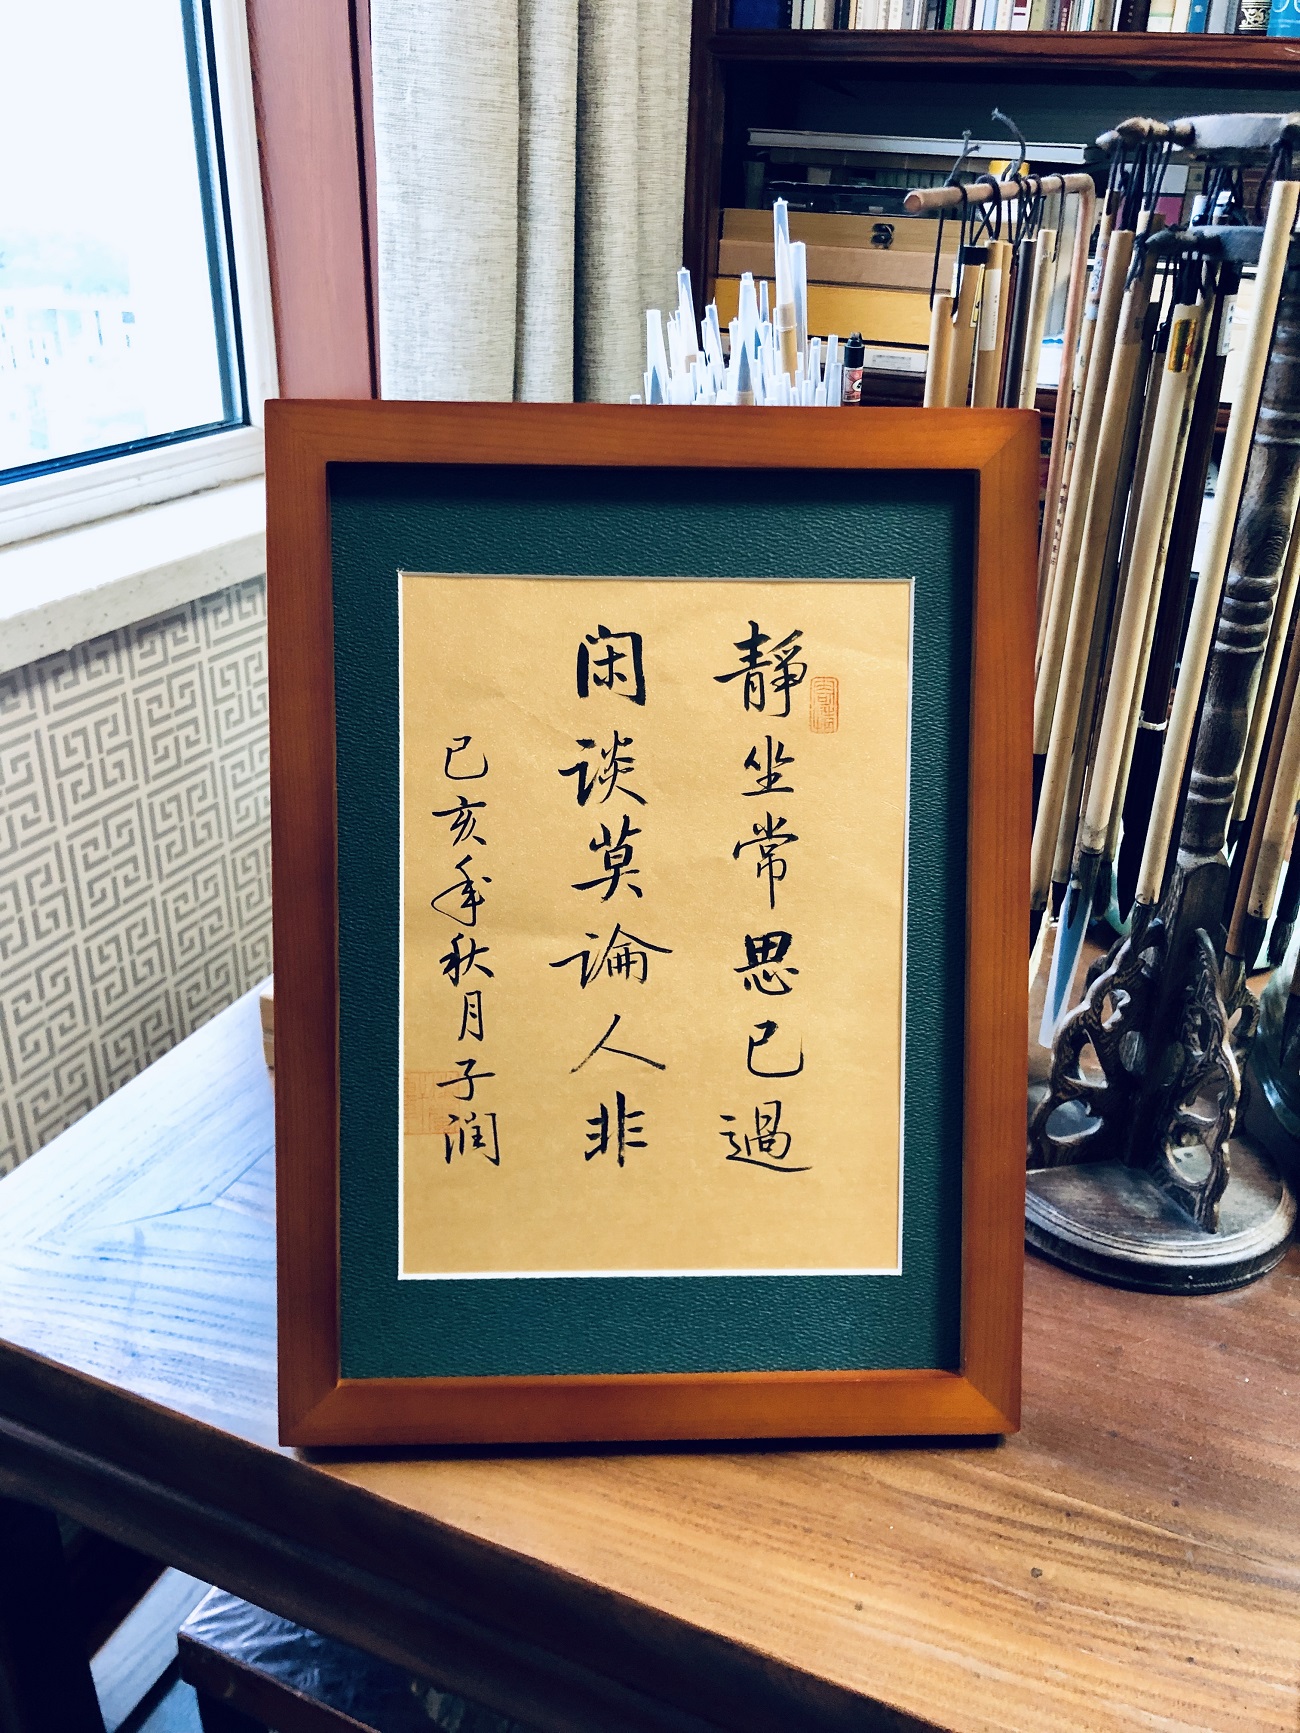 靜坐常思己過
闲谈莫論人非
己亥年秋月子润